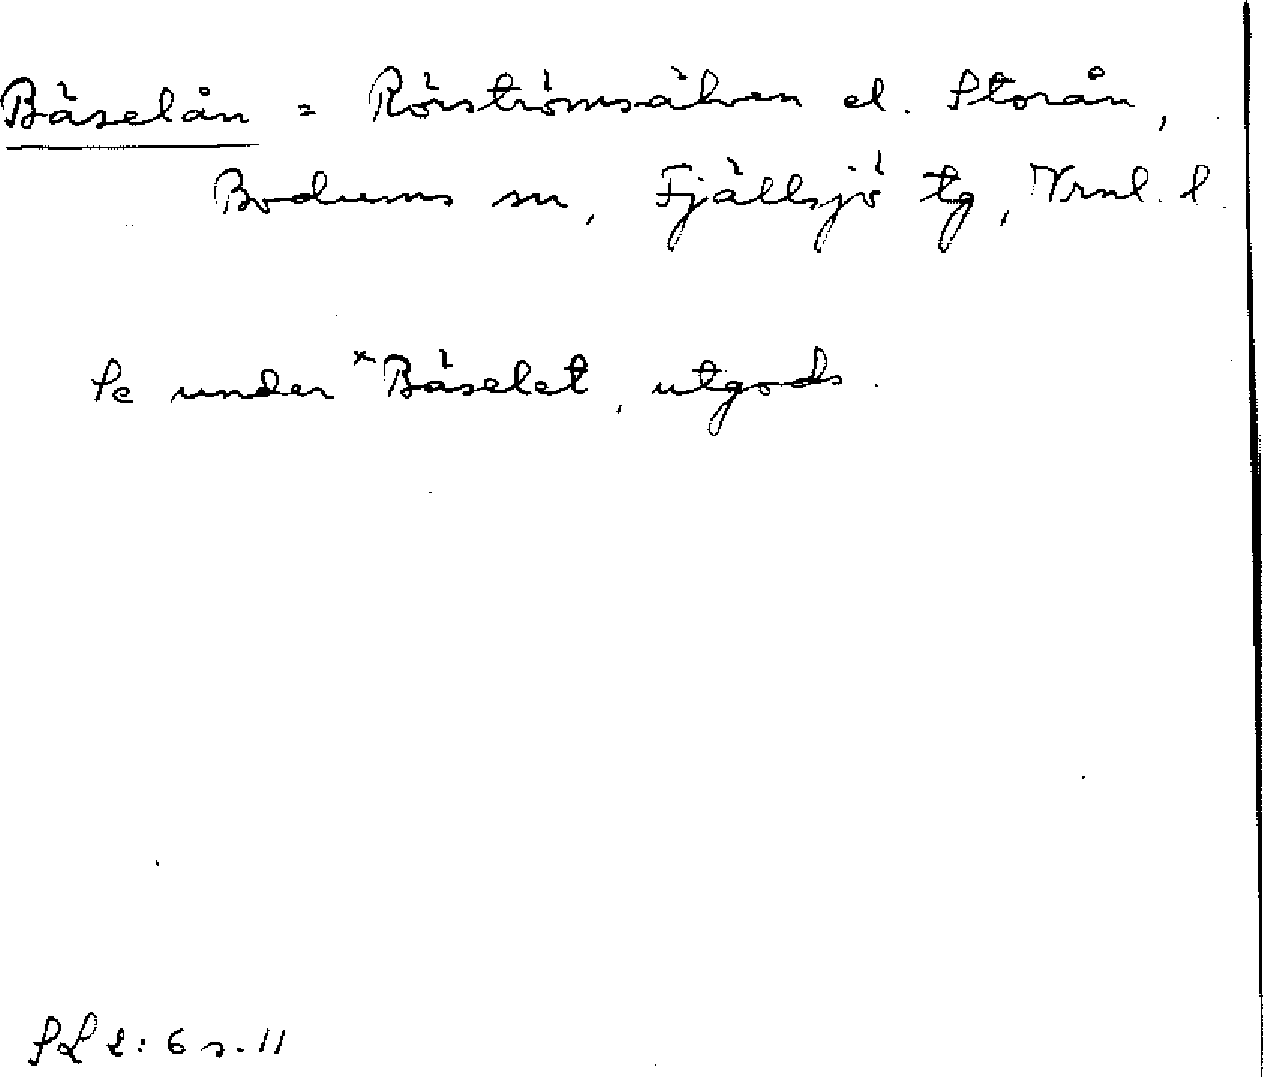 Bäselån = Rörströmsälven el. Storån,
Bodums sn, Fjällsjö tg, Vrnl. l.
Se under *Bäselet, utgods.
SL 2:6 s. 11